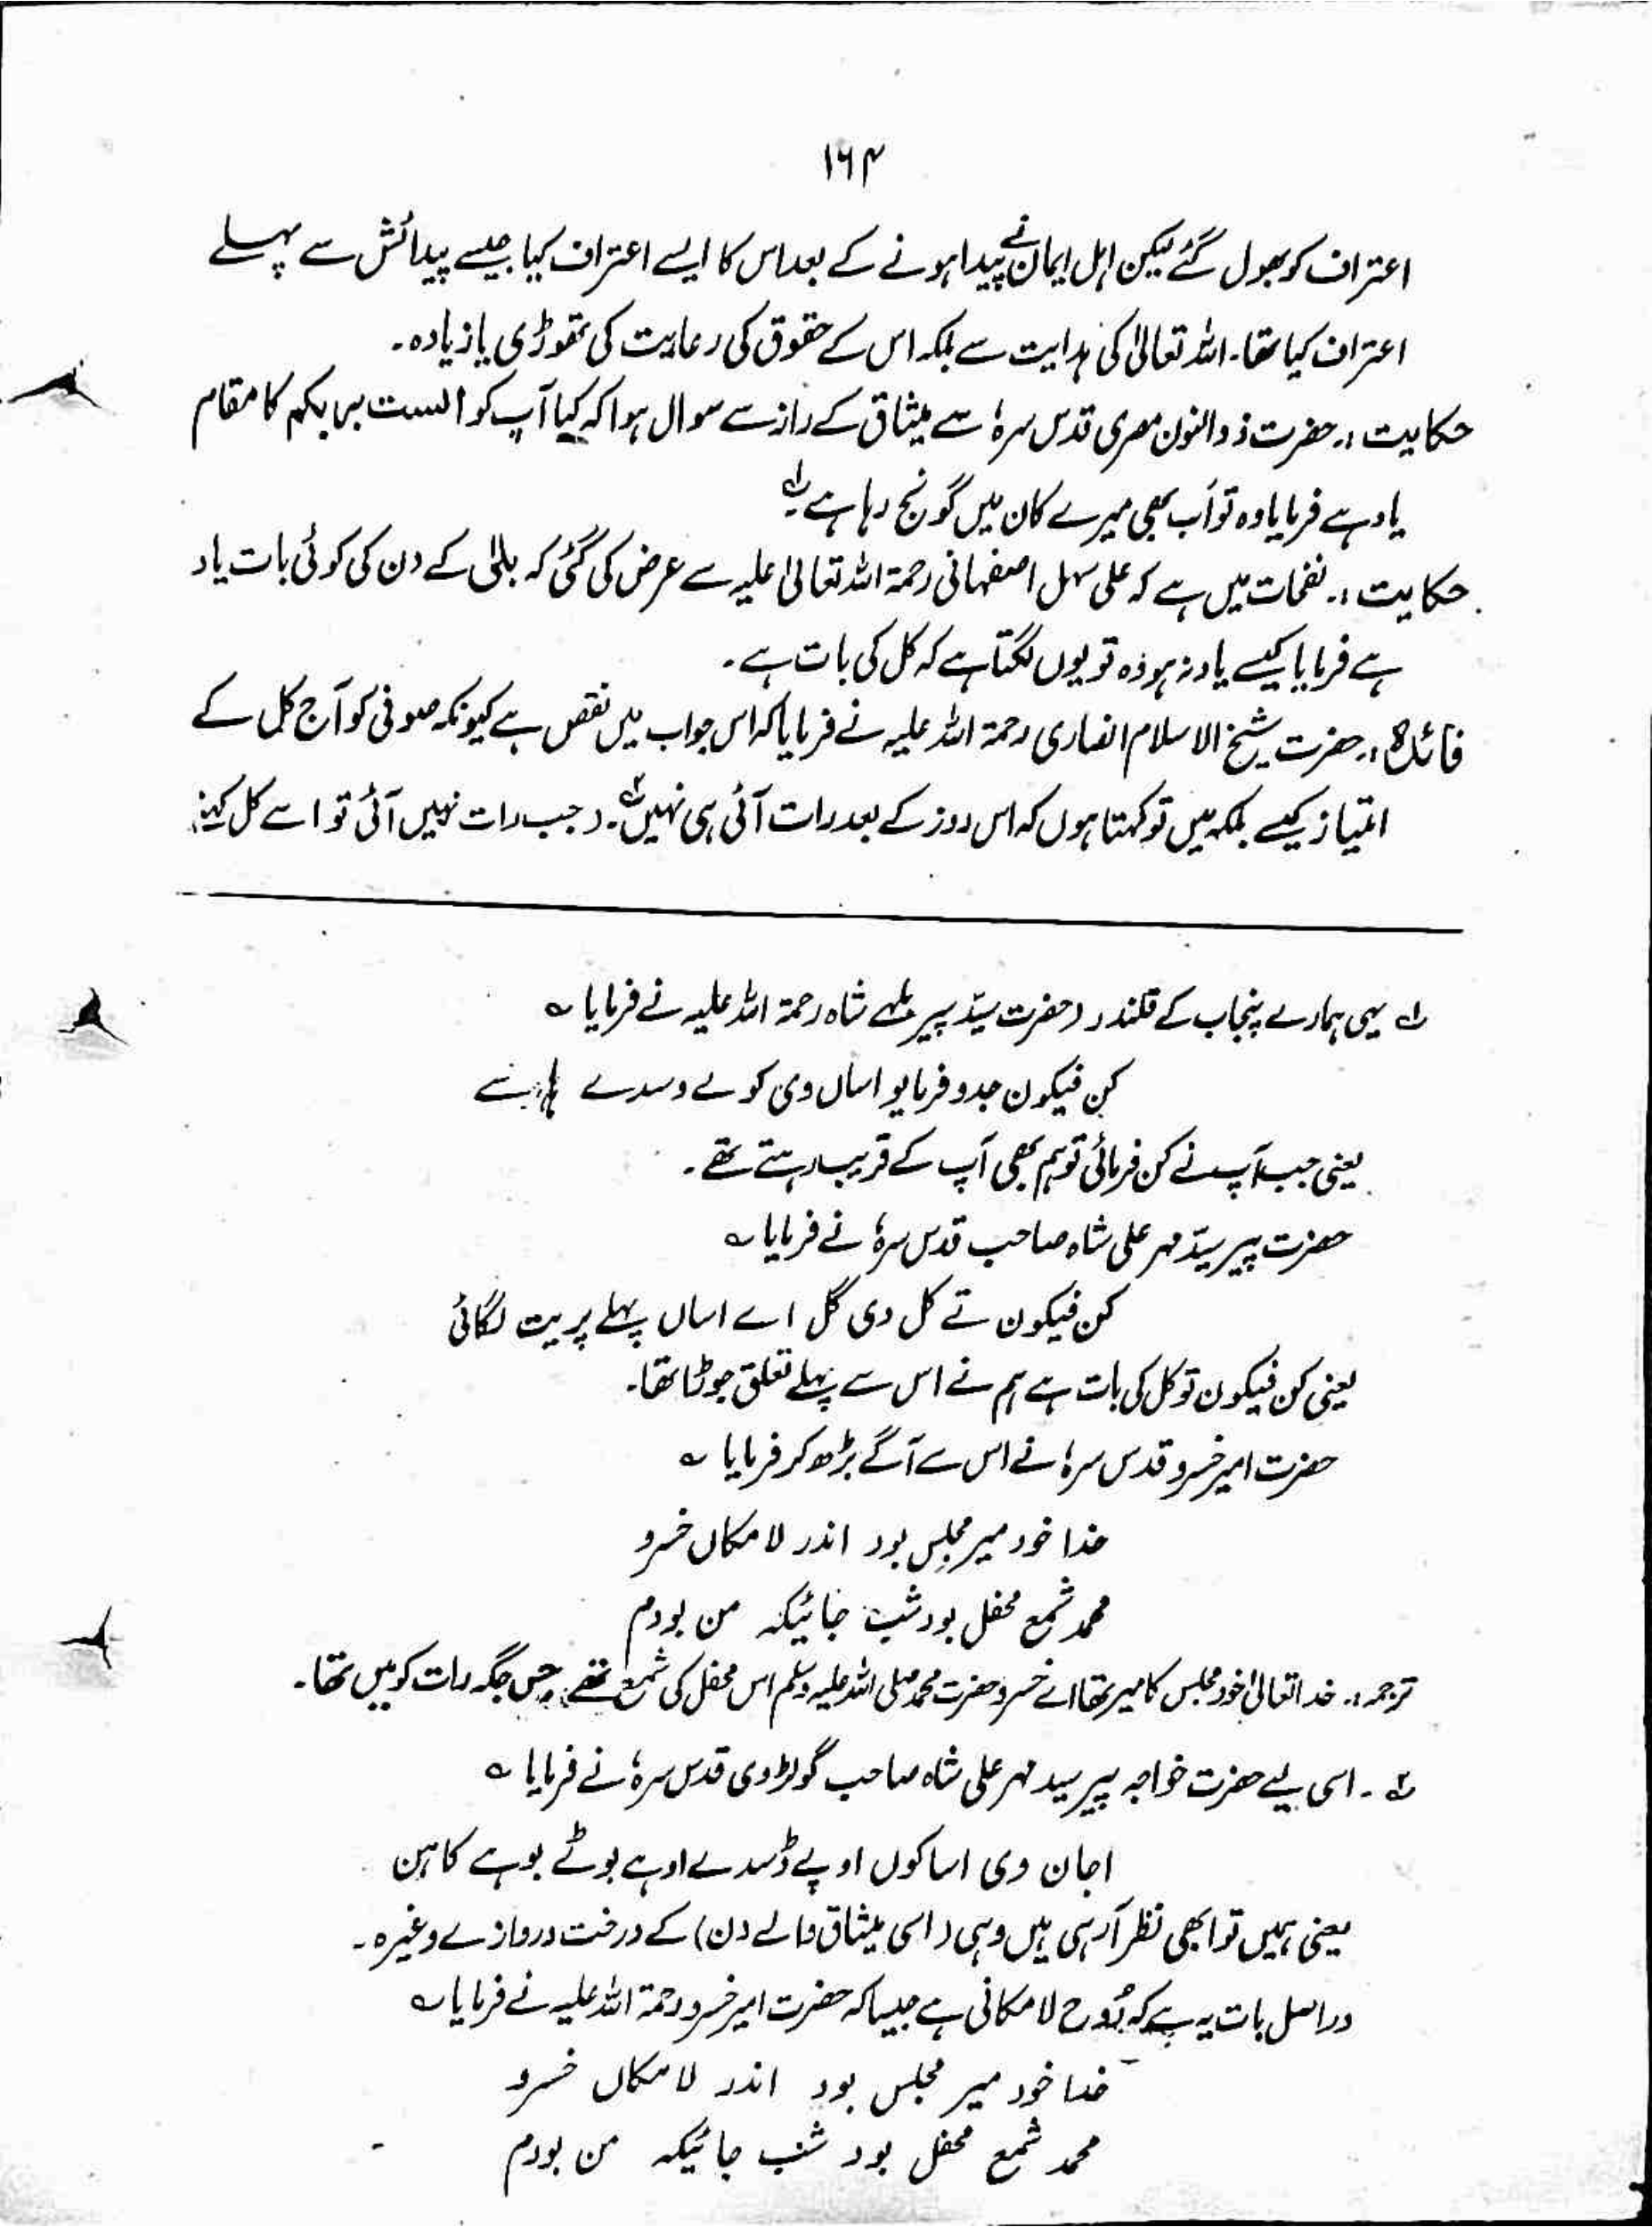 ۱۶۴
اعتراف کو بھول گئے لیکن اہل ایمان نے پیدا ہونے کے بعد اس کا ایسے اعتراف کیا جیسے پیدائش سے پہلے
اعتراف کیا تھا۔ اللہ تعالیٰ کی ہدایت سے بلکہ اس کے حقوق کی رعایت کی تھوڑی یا زیادہ۔
حکایت :۔ حضرت ذوالنون مصری قدس سرہٗ سے میثاق کے راز سے سوال ہوا کہ کیا آپ کو الست بربکم کا مقام
یاد ہے فرمایا وہ تو اَب بھی میرے کان میں گونج رہا ہے ۱؎
حکایت :۔ نفحات میں ہے کہ علی سہل اصفہانی رحمۃ اللہ تعالیٰ علیہ سے عرض کی گئی کہ بلیٰ کے دن کی کوئی بات یاد
ہے فرمایا کیسے یاد نہ ہو وہ تو یوں لگتا ہے کہ کل کی بات ہے۔
فائدہ :۔ حضرت شیخ الاسلام انصاری رحمۃ اللہ علیہ نے فرمایا کہ اس جواب میں نقص ہے کیونکہ صوفی کو آج کل کے
امتیاز کیسے بلکہ میں تو کہتا ہوں کہ اس روز کے بعد رات آئی ہی نہیں ۲؎۔ (جب رات نہیں آئی تو اسے کل کہنا
۱؎ یہی ہمارے پنجاب کے قلندر (حضرت سیّد پیر بلھے شاہ رحمۃ اللہ علیہ نے فرمایا ؎
کن فیکون جدو فرمایو اساں وی کولے وسدے
یعنی جب آپ نے کن فرمائی تو ہم بھی آپ کے قریب رہتے تھے۔
حضرت پیر سیّد مہر علی شاہ صاحب قدس سرہٗ نے فرمایا ؎
کن فیکون تے کل دی گل اے اساں پہلے پریت لگائی
یعنی کن فیکون تو کل کی بات ہے ہم نے اس سے پہلے تعلق جوڑا تھا۔
حضرت امیر خسرو قدس سرہٗ نے اس سے آگے بڑھ کر فرمایا ؎
خدا خود میر مجلس بود اندر لامکاں خسرو
محمد شمع محفل بود شب جائیکہ من بودم
ترجمہ :۔ خدا تعالیٰ خود مجلس کا میر تھا اے خسرو حضرت محمد صلی اللہ علیہ وسلم اس محفل کی شمع تھے جس جگہ رات کو میں تھا۔
۲؎ ۔ اسی لیے حضرت خواجہ پیر سید مہر علی شاہ صاحب گولڑوی قدس سرہٗ نے فرمایا ؎
اجان وی اساکوں او پے ڈسدے اوہے بوٹے بوہے کاہن
یعنی ہمیں تو ابھی نظر آ رہی ہیں وہی (اسی میثاق والے دن) کے درخت دروازے وغیرہ۔
دراصل بات یہ ہے کہ رُوح لامکانی ہے جیسا کہ حضرت امیر خسرو رحمۃ اللہ علیہ نے فرمایا ؎
خدا خود میر مجلس بود اندر لامکاں خسرو
محمد شمع محفل بود شب جائیکہ من بودم